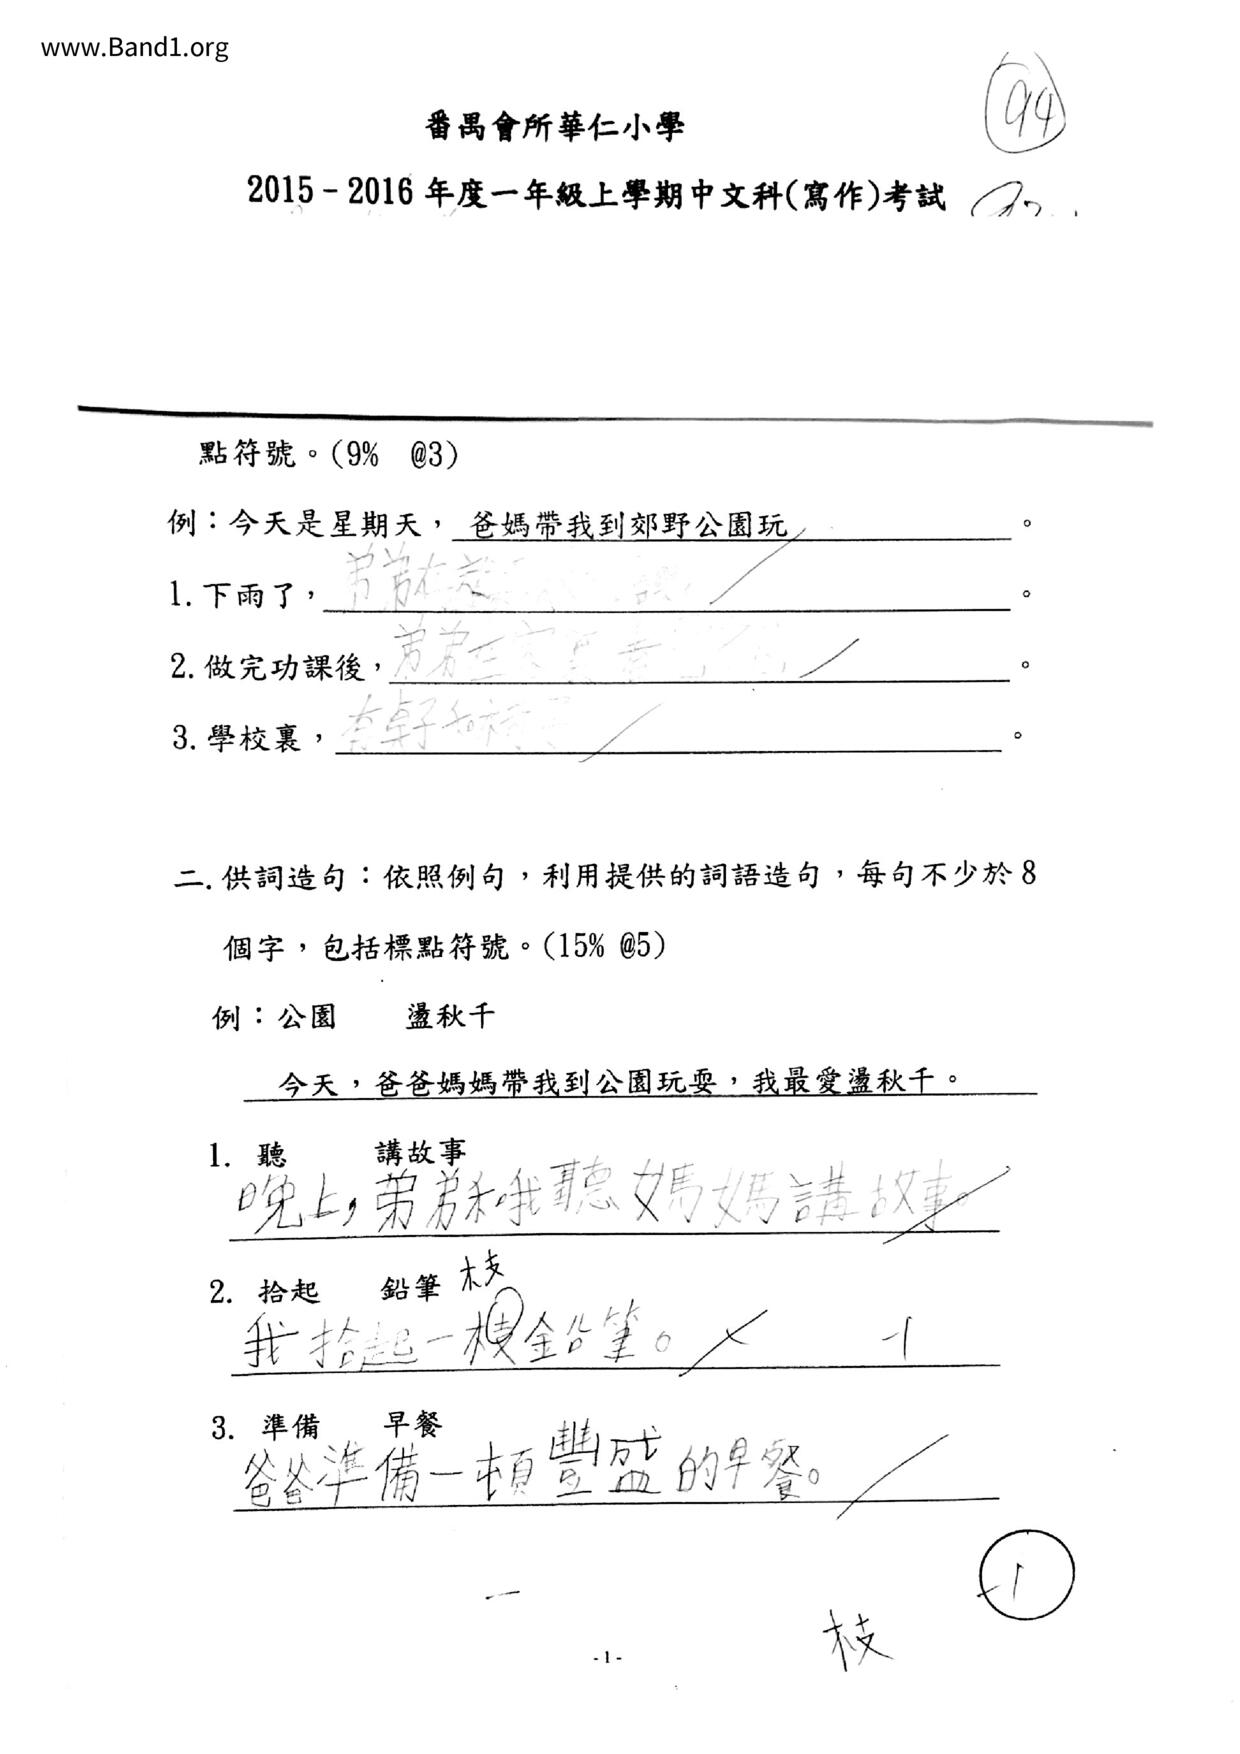 www.Band1.org
94
番禺會所華仁小學
2015-2016年度一年級上學期中文科(寫作)考試
點符號。(9% @3)
例：今天是星期天，爸媽帶我到郊野公園玩。
1.下雨了，弟弟在。
2.做完功課後，弟弟在家。
3.學校裏，有桌子和椅子。
二.供詞造句：依照例句，利用提供的詞語造句，每句不少於8
個字，包括標點符號。(15% @5)
例：公園 盪秋千
今天，爸爸媽媽帶我到公園玩耍，我最愛盪秋千。
1. 聽 講故事
晚上，弟弟和我聽媽媽講故事。
2. 拾起 鉛筆 枝
我拾起一鉛筆。 -1
3. 準備 早餐
爸爸準備一頓豐盛的早餐。
-1
枝
-1-